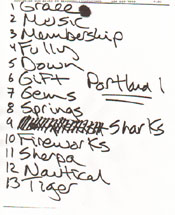 2 Music
3 Membership
4 Fully
5 Down
6 Gift
Portland 1
7 Gems
8 Springs
9 Sharks
10 Fireworks
11 Sherpa
12 Nautical
13 Tiger